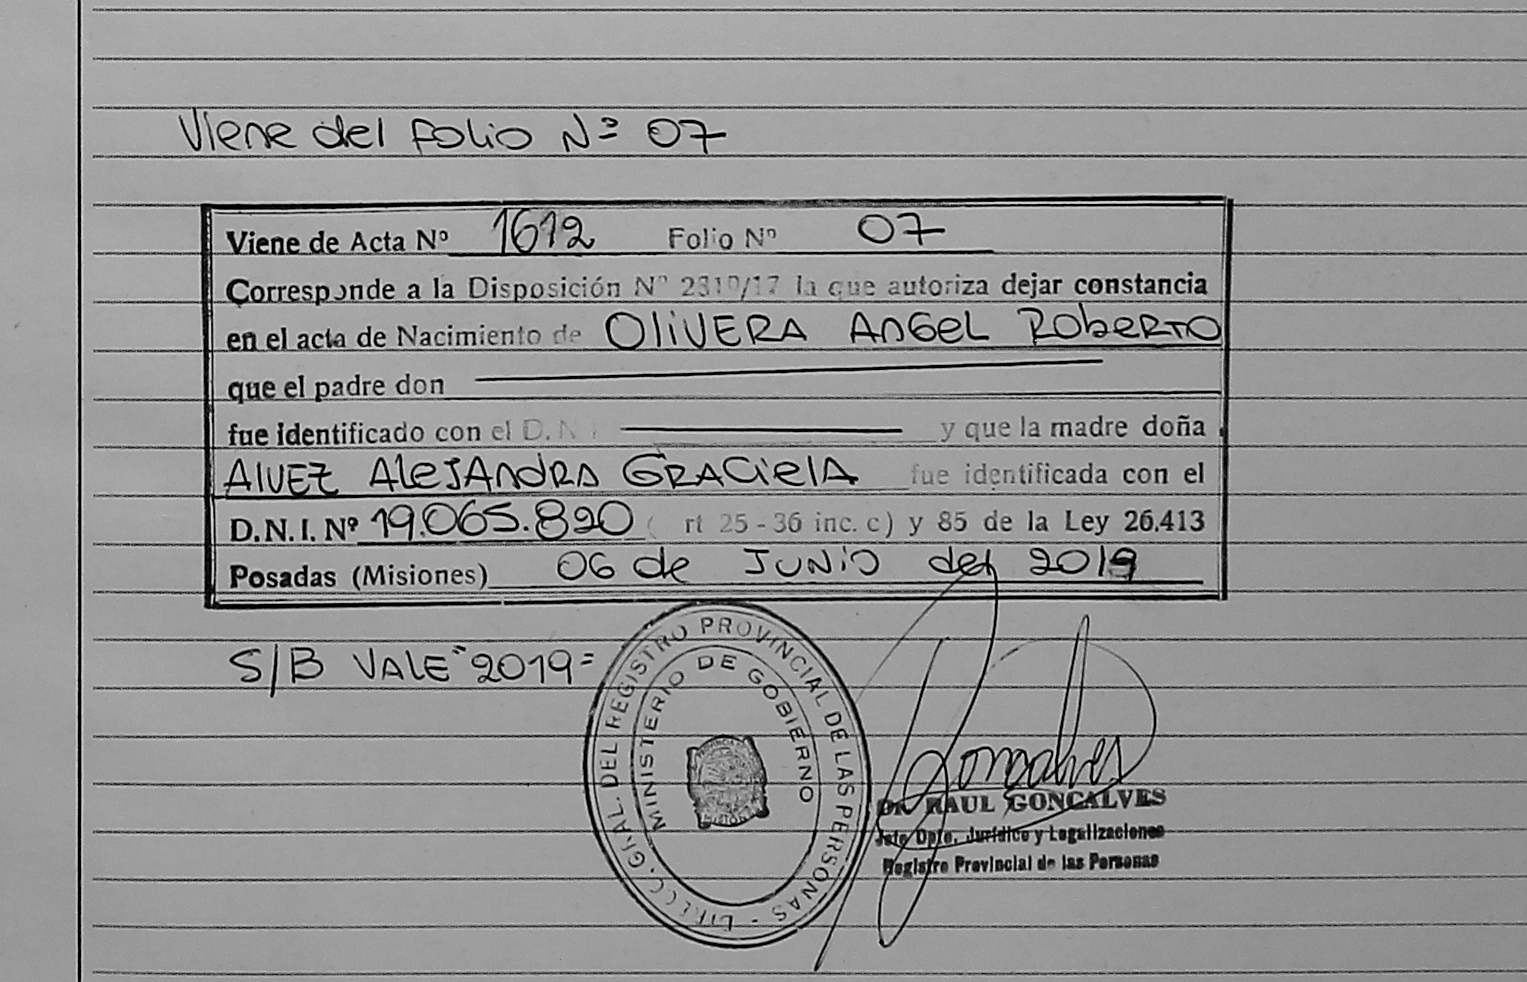 Viene del folio Nº 07
Viene de Acta Nº 1612 Folio Nº 07
Corresponde a la Disposición Nº 2310/17 la que autoriza dejar constancia
en el acta de Nacimiento de OLIVERA ANGEL ROBERTO
que el padre don
fue identificado con el D.N.I. y que la madre doña
ALVEZ ALEJANDRA GRACIELA fue identificada con el
D.N.I. Nº 19.065.820 ( rt 25 - 36 inc. c) y 85 de la Ley 26.413
Posadas (Misiones) 06 de JUNIO del 2019
S/B VALE "2019=
DIRECC. GRAL. DEL REGISTRO PROVINCIAL DE LAS PERSONAS -
MINISTERIO DE GOBIERNO
Goncalves
Dr. RAUL GONCALVES
Jefe Dpto. Jurídico y Legalizaciones
Registro Provincial de las Personas